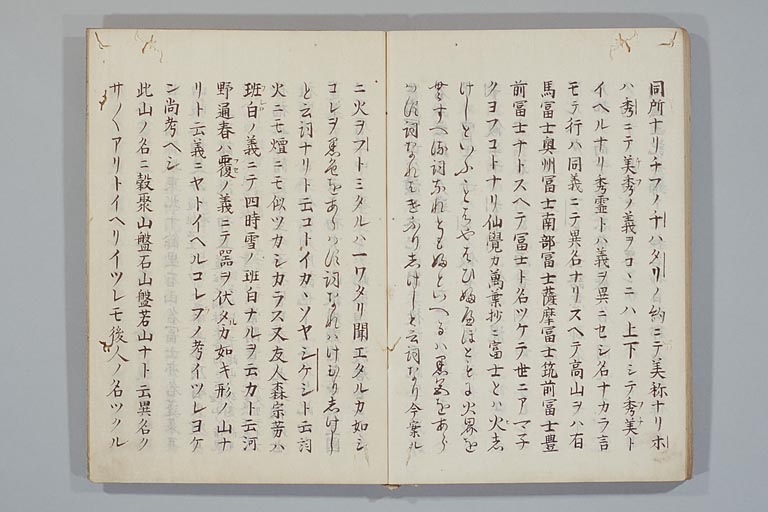 同所ナリチフノチハタリノ約ニテ美称ナリホ
ハ秀ニテ美秀ノ義ヲコヽニハ上下シテ秀美ト
イヘルナリ秀霊トハ義ヲ異ニセシ名ナカラ言
モテ行ハ同義ニテ異名ナリスヘテ高山ヲハ有
馬富士奥州冨士南部冨士薩摩富士筑前冨士豊
前冨士ナトスヘテ冨士ト名ツケテ世ニアマ子
クヨフコトナリ仙覺カ萬葉抄ニ富士とハ火志
けしといふ
詞なれとも
といへるハ悪氣をあら
ハす詞なれハ
けしと云詞なり今案ル
ニ火ヲフトミタルハ一ワタリ聞エタルカ如シ
コレヲ悪色をあらハす詞なれハけむり志けし
と云詞ナリト云コトイカヽソヤシケシト云詞
火ニモ煙ニモ似ツカシカラス又友人森宗芳ハ
班白ノ義ニテ四時雪ノ班白ナルヲ云カト云河
野通春ハ覆ノ義ニテ器ヲ伏タルカ如キ形ノ山ナ
リト云義ニヤトイヘルコレラノ考イツレヨケ
ン尚考ヘシ
此山ノ名ニ穀聚山盤石山盤若山ナト云異名ク
サ〳〵アリトイヘリイツレモ後人ノ名ツクル